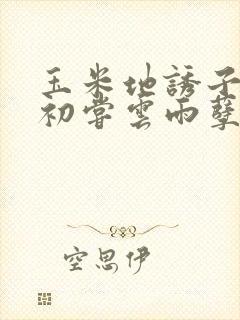 玉米地誘子
初嘗雲雨孽
空思伊